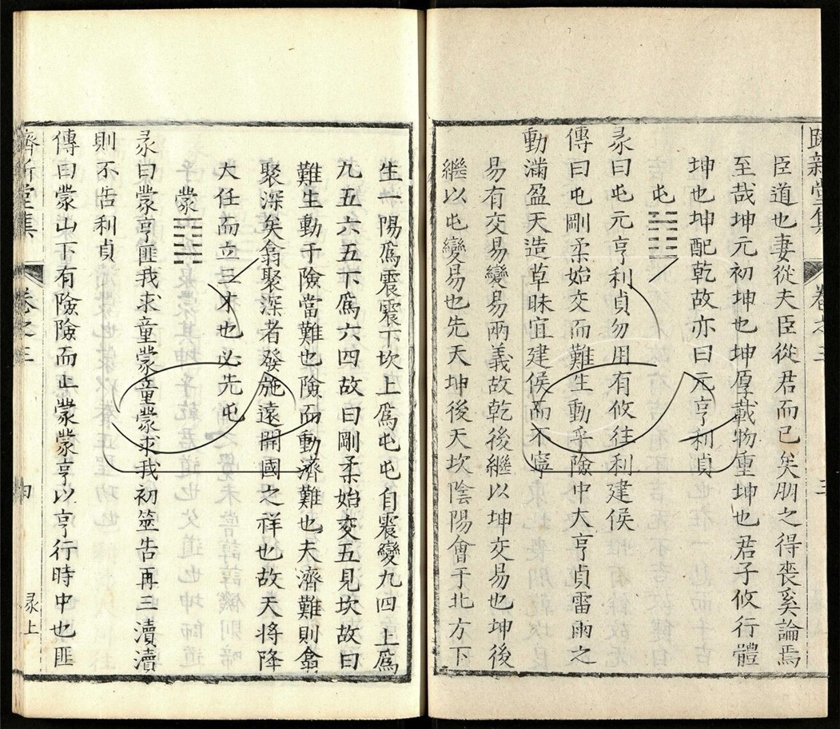 臣道也妻從夫臣從君而已矣朋之得喪奚論焉
至哉坤元初坤也坤厚載物重坤也君子攸行體
坤也坤配乾故亦曰元亨利貞
屯
彖曰屯元亨利貞勿用有攸往利建侯
傳曰屯剛柔始交而難生動乎險中大亨貞雷雨之
動滿盈天造草昧宜建侯而不寧
易有交易變易兩義故乾後繼以坤交易也坤後
繼以屯變易也先天坤後天坎陰陽會于北方下
生一陽爲震震下坎上爲屯屯自震變九四上爲
九五六五下爲六四故曰剛柔始交五見坎故曰
難生動于險當難也險而動濟難也夫濟難則翕
聚深矣翕聚深者發施遠開國之祥也故天將降
大任而立三才也必先屯
蒙
彖曰蒙亨匪我求童蒙童蒙求我初筮告再三瀆瀆
則不告利貞
傳曰蒙山下有險險而止蒙蒙亨以亨行時中也匪
新堂集
卷之三
彖上